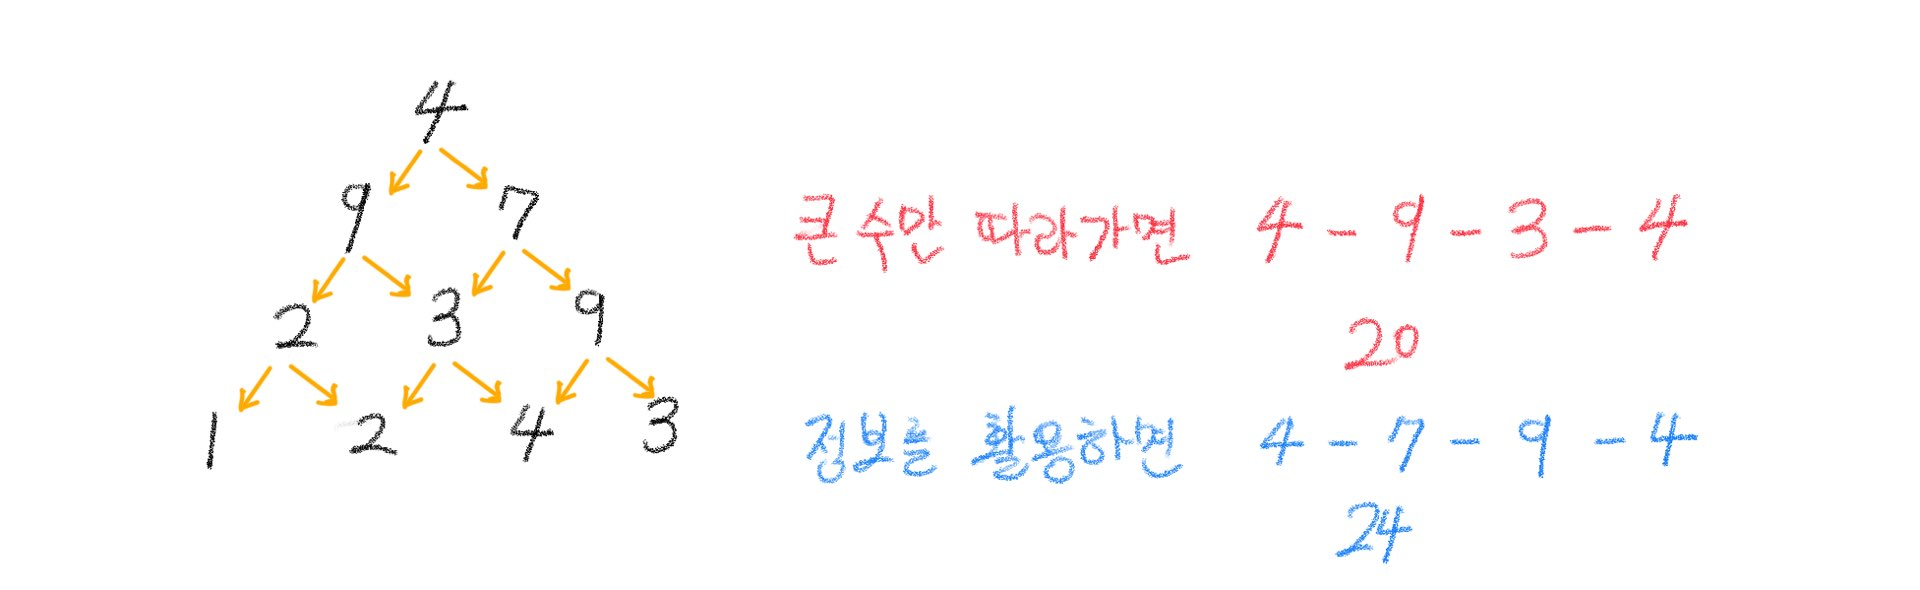 4
9 7
2 3 9
1 2 4 3
큰 수만 따라가면 4 - 9 - 3 - 4
20
정보를 활용하면 4 - 7 - 9 - 4
24